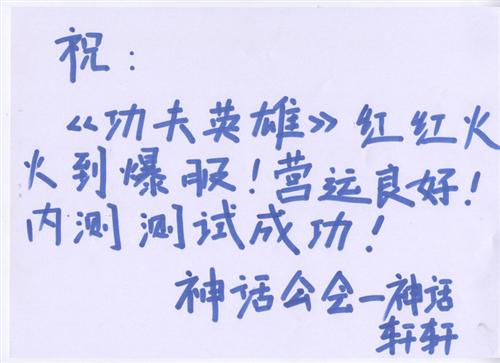 祝：
《功夫英雄》红红火
火到爆服！营运良好！
内测测试成功！
神话公会—神话
轩轩